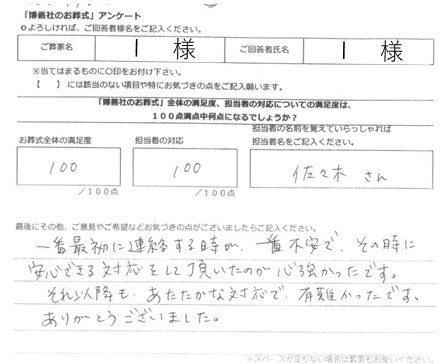 「博善社のお葬式」アンケート
よろしければ、ご回答者様名をご記入ください。
ご葬家名 I 様 ご回答者氏名 I 様
※当てはまるものに○印をお付け下さい。
【 】には該当のない項目や特にお気づきの点をご記入願います。
「博善社のお葬式」全体の満足度、担当者の対応についての満足度は、
100点満点中何点になるでしょうか?
お葬式全体の満足度 担当者の対応 担当者の名前を覚えていらっしゃれば
担当者名をご記入ください。
100 100 佐々木 さん
/100点 /100点
最後にその他、ご意見やご希望などお気づきの点がございましたらご記入ください。
一番最初に連絡する時が、一番不安で、その時に
安心できる対応をして頂いたのが心強かったです。
それ以降も、あたたかな対応で、有難かったです。
ありがとうございました。
※スペースが足りない場合は裏面もお使いください。